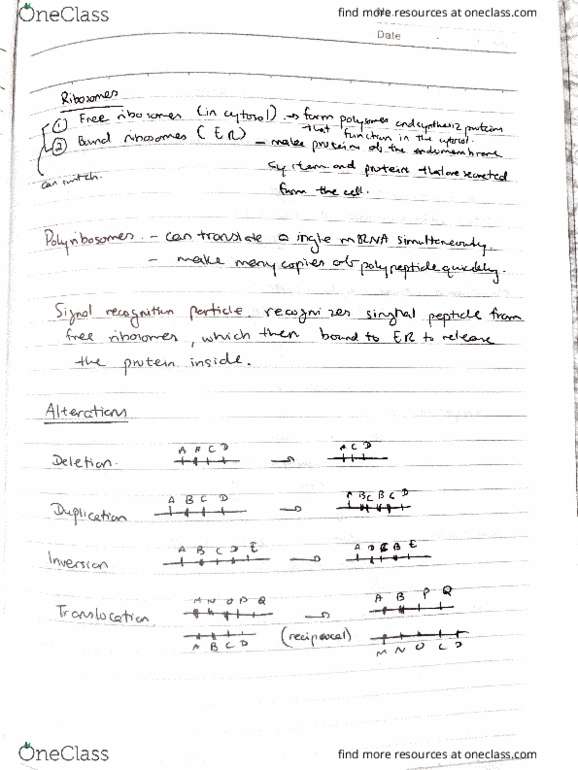 OneClass
find more resources at oneclass.com
Date
Ribosomes
① Free ribosomes (in cytosol) → form polysomes and synthesiz proteins
that function in the cytosol.
② Bound ribosomes (ER) – make proteins of the endomembrane
system and proteins that are secreted
form the cell.
can switch.
Polyribosomes. – can translate a ingle mRNA simultaneously.
– make many copies of polypeptide quickly.
Signal recognition particle, recognizes singnal peptide from
free ribosomes, which then bound to ER to release
the protein inside.
Alterations
Deletion. A B C D → A C D
Duplication A B C D → A B C B C D
Inversion A B C D E → A D C B E
Translocation. M N O P Q → A B P Q
A B C D (reciprocal) M N O C D
OneClass
find more resources at oneclass.com